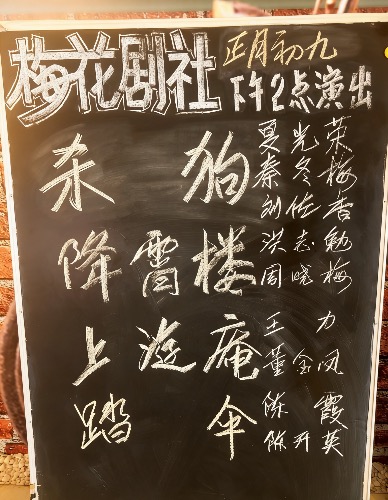 梅花剧社
正月初九
下午2点演出
杀狗 夏光荣
秦冬梅
刘佐香
降霄楼 洪志勤
周晓梅
上游庵 王力
董全凤
踏伞 陈霞
陈开英